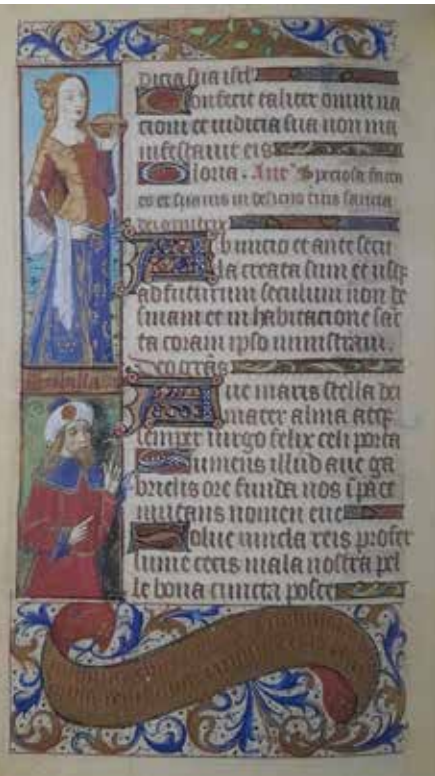 dicia sua isrl
Non fecit taliter omni na
cioni et iudicia sua non ma
nifestauit eis
Gloria. Ant' Speciosa facta
es et suauis in deliciis tuis sancta
dei genitrix
Ab inicio et ante secu
la creata sum et usqz
ad futurum seculum non de
sinam et in habitacione sac
ta coram ipso ministraui.
Deo gras
Aue maris stella dei
mater alma atqz
semper uirgo felix celi porta
Sumens illud aue ga
brielis ore funda nos i pace
mutans nomen eue
Solue uincla reis profer
lumen cecis mala nostra pel
le bona cuncta posce